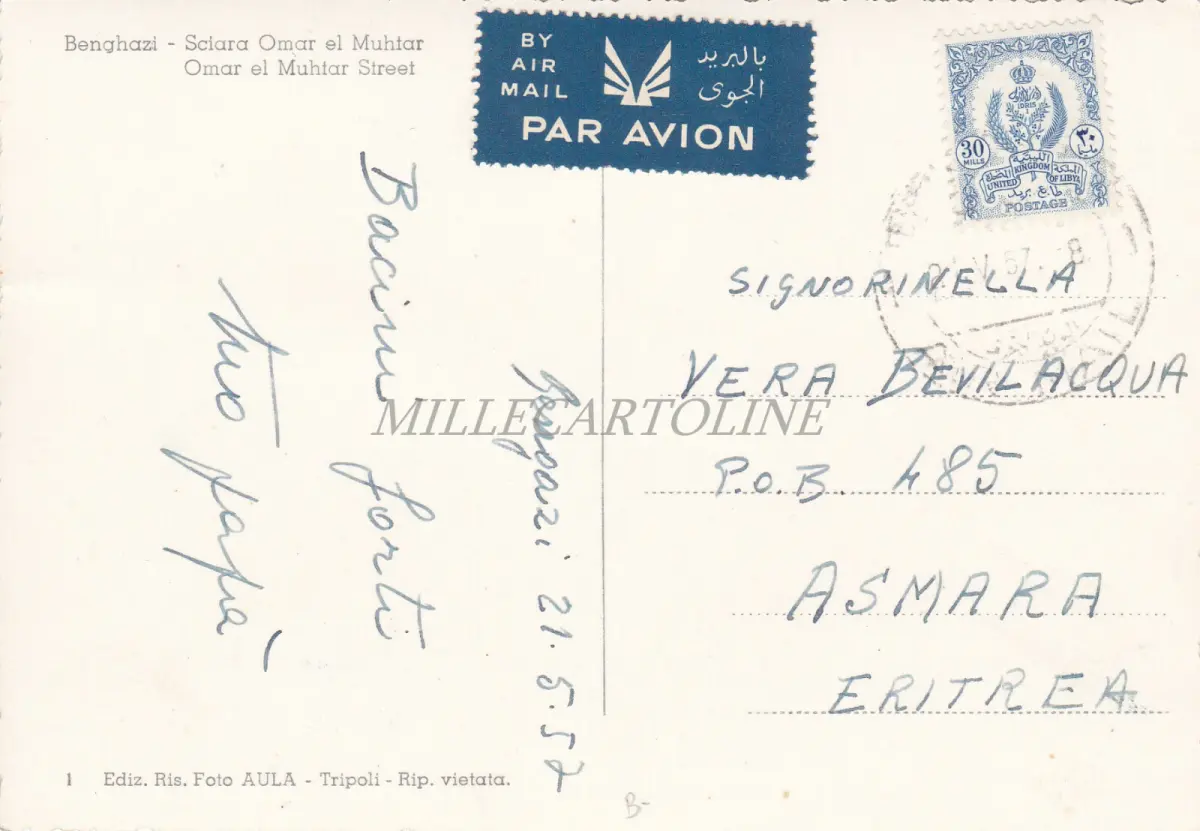 Benghazi - Sciara Omar el Muhtar
Omar el Muhtar Street
BY
AIR
MAIL
بالبريد
الجوى
PAR AVION
IDRIS
30
MILLS
٣٠
UNITED KINGDOM OF LIBYA
طابع بريد
POSTAGE
SIGNORINELLA
VERA BEVILACQUA
P.O.B. 485
ASMARA
ERITREA
Bengazi 21.5.57
Bacini forti
tuo papà
MILLECARTOLINE
1 Ediz. Ris. Foto AULA - Tripoli - Rip. vietata.
B-